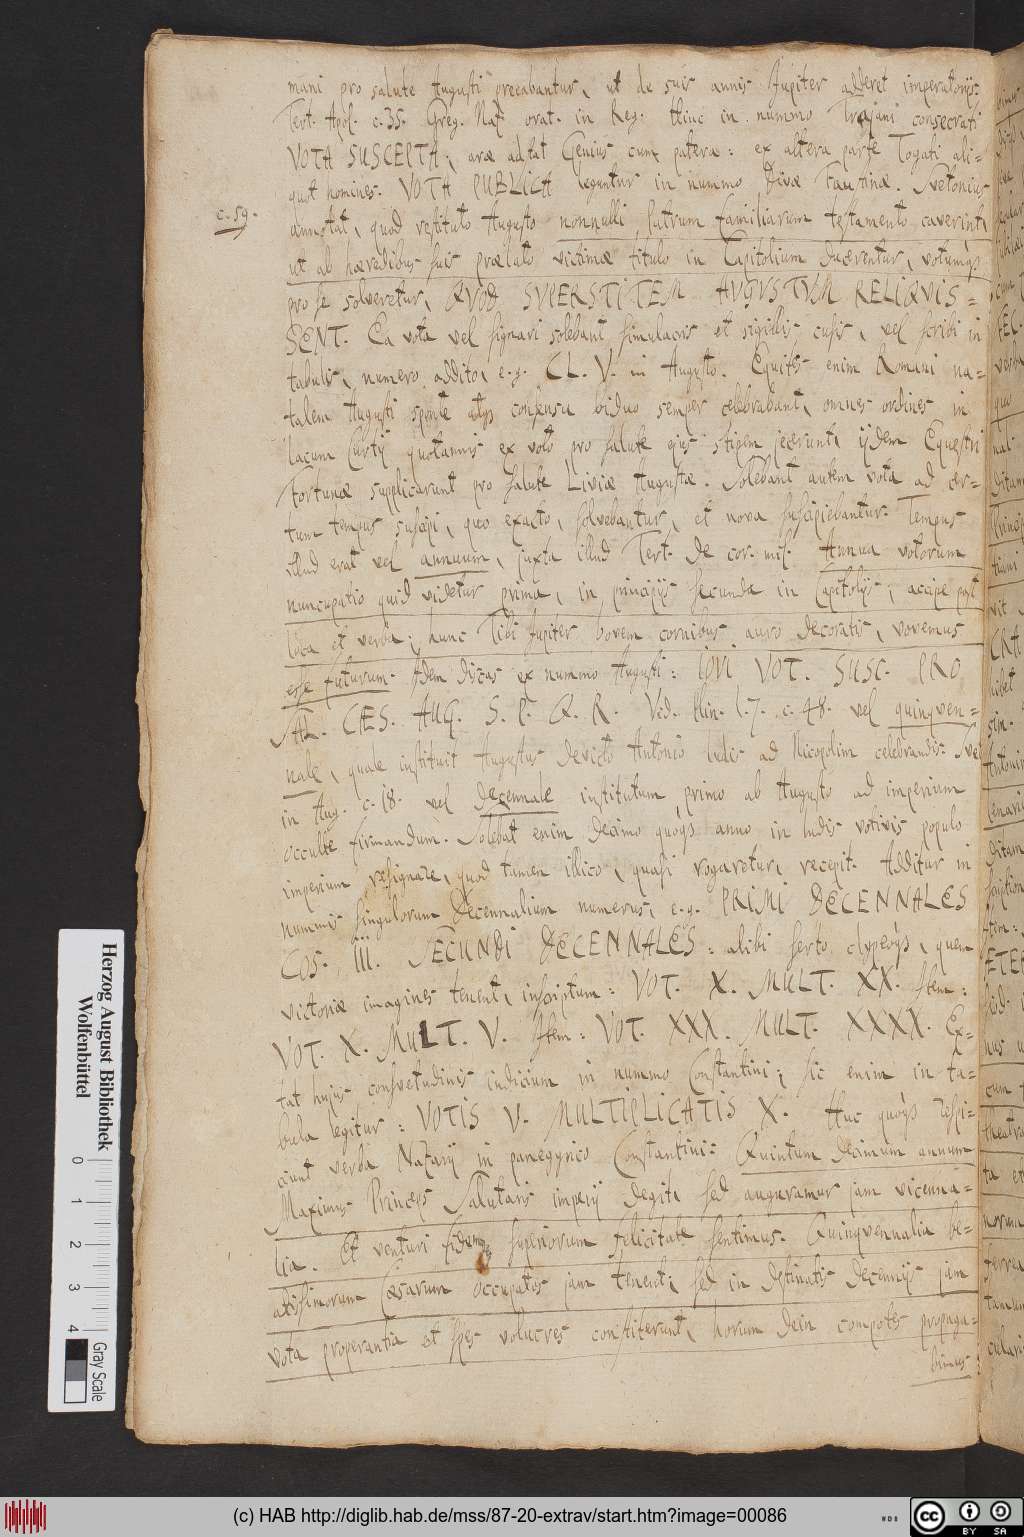 mani pro salute Augusti precabantur, ut de suis annis Jupiter adderet imperatorijs.
Tert. Apol. c. 35. Greg. Naz. orat. in Reg. Hinc in nummo Trajani consecrati
VOTA SUSCEPTA, aræ adstat Genius cum patera: ex altera parte Togati ali=
quot homines. VOTA PUBLICA leguntur in nummo Divæ Faustinæ. Svetonius
c. 59.
annotat, quod restituto Augusto nonnulli Patrum familiarum testamento caverint,
ut ab hæredibus suis prælato victimæ titulo in Capitolium ducerentur, votumq;
pro se solveretur, QVOD SVPERSTITEM AVGVSTVM RELIQVIS=
SENT. Ea vota vel signari solebant simulacris et sigillis cusis, vel scribi in
tabulis, numero addito, e. g. CL. V. in Augusto. Equites enim Romani na=
talem Augusti sponte atq; consensu biduo semper celebrabant, omnes ordines in
lacum Curtij quotannis ex voto pro salute ejus stipem jecerunt, ijdem Equestri
Fortunæ supplicarunt pro salute Liviæ Augustæ. Solebant autem vota ad cer=
tum tempus suscipi, quo exacto, solvebantur, et nova suscipiebantur. Tempus
illud erat vel annuum, juxta illud Tert. de cor. mil. Annua votorum
nuncupatio quid videtur prima, in principijs secunda in Capitolijs; accipe post
loca et verba; hunc Tibi Jupiter bovem cornibus auro decoratis, vovemus
esse futurum. Idem discas ex nummo Augusti: IOVI VOT. SUSC. PRO
SAL. CÆS. AUG. S. P. Q. R. Vid. Plin. l. 7. c. 48. vel quinqven=
nale, quale instituit Augustus devicto Antonio ludis ad Nicopolim celebrandis. Sve
in Aug. c. 18. vel decennale institutum primo ab Augusto ad imperium
occulte firmandum. Solebat enim decimo quoq; anno in ludis votivis populo
imperium resignare, quod tamen illico, quasi rogaretur, recepit. Additur in
nummis singulorum Decennalium numerus, e. g. PRIMI DECENNALES
COS. III. SECUNDI DECENNALES: alibi serto clypeoq;, quem
victoriæ imagines tenent, inscriptum: VOT. X. MULT. XX. Item:
VOT. X. MULT. V. Item: VOT. XXX. MULT. XXXX. Ex=
tat hujus consvetudinis indicium in nummo Constantini; sic enim in ta=
bula legitur: VOTIS V. MULTIPLICATIS X. Huc quoq; respi=
ciunt verba Nazarij in panegyrico Constantini: Quintum decimum annum
Maximus Princeps Salutaris imperij degit, sed auguramur jam vicenna=
lia. Et venturi fidem superiorum felicitate sentimus. Quinqvennalia be=
atissimorum Cæsarum occupatos jam tenent; sed in destinatis decennijs jam
vota properantia et spes volucres constiterunt, horum dein compotes propaga=
bimus
Herzog August Bibliothek
Wolfenbüttel
0 1 2 3 4
Gray Scale
(c) HAB http://diglib.hab.de/mss/87-20-extrav/start.htm?image=00086
cc BY SA